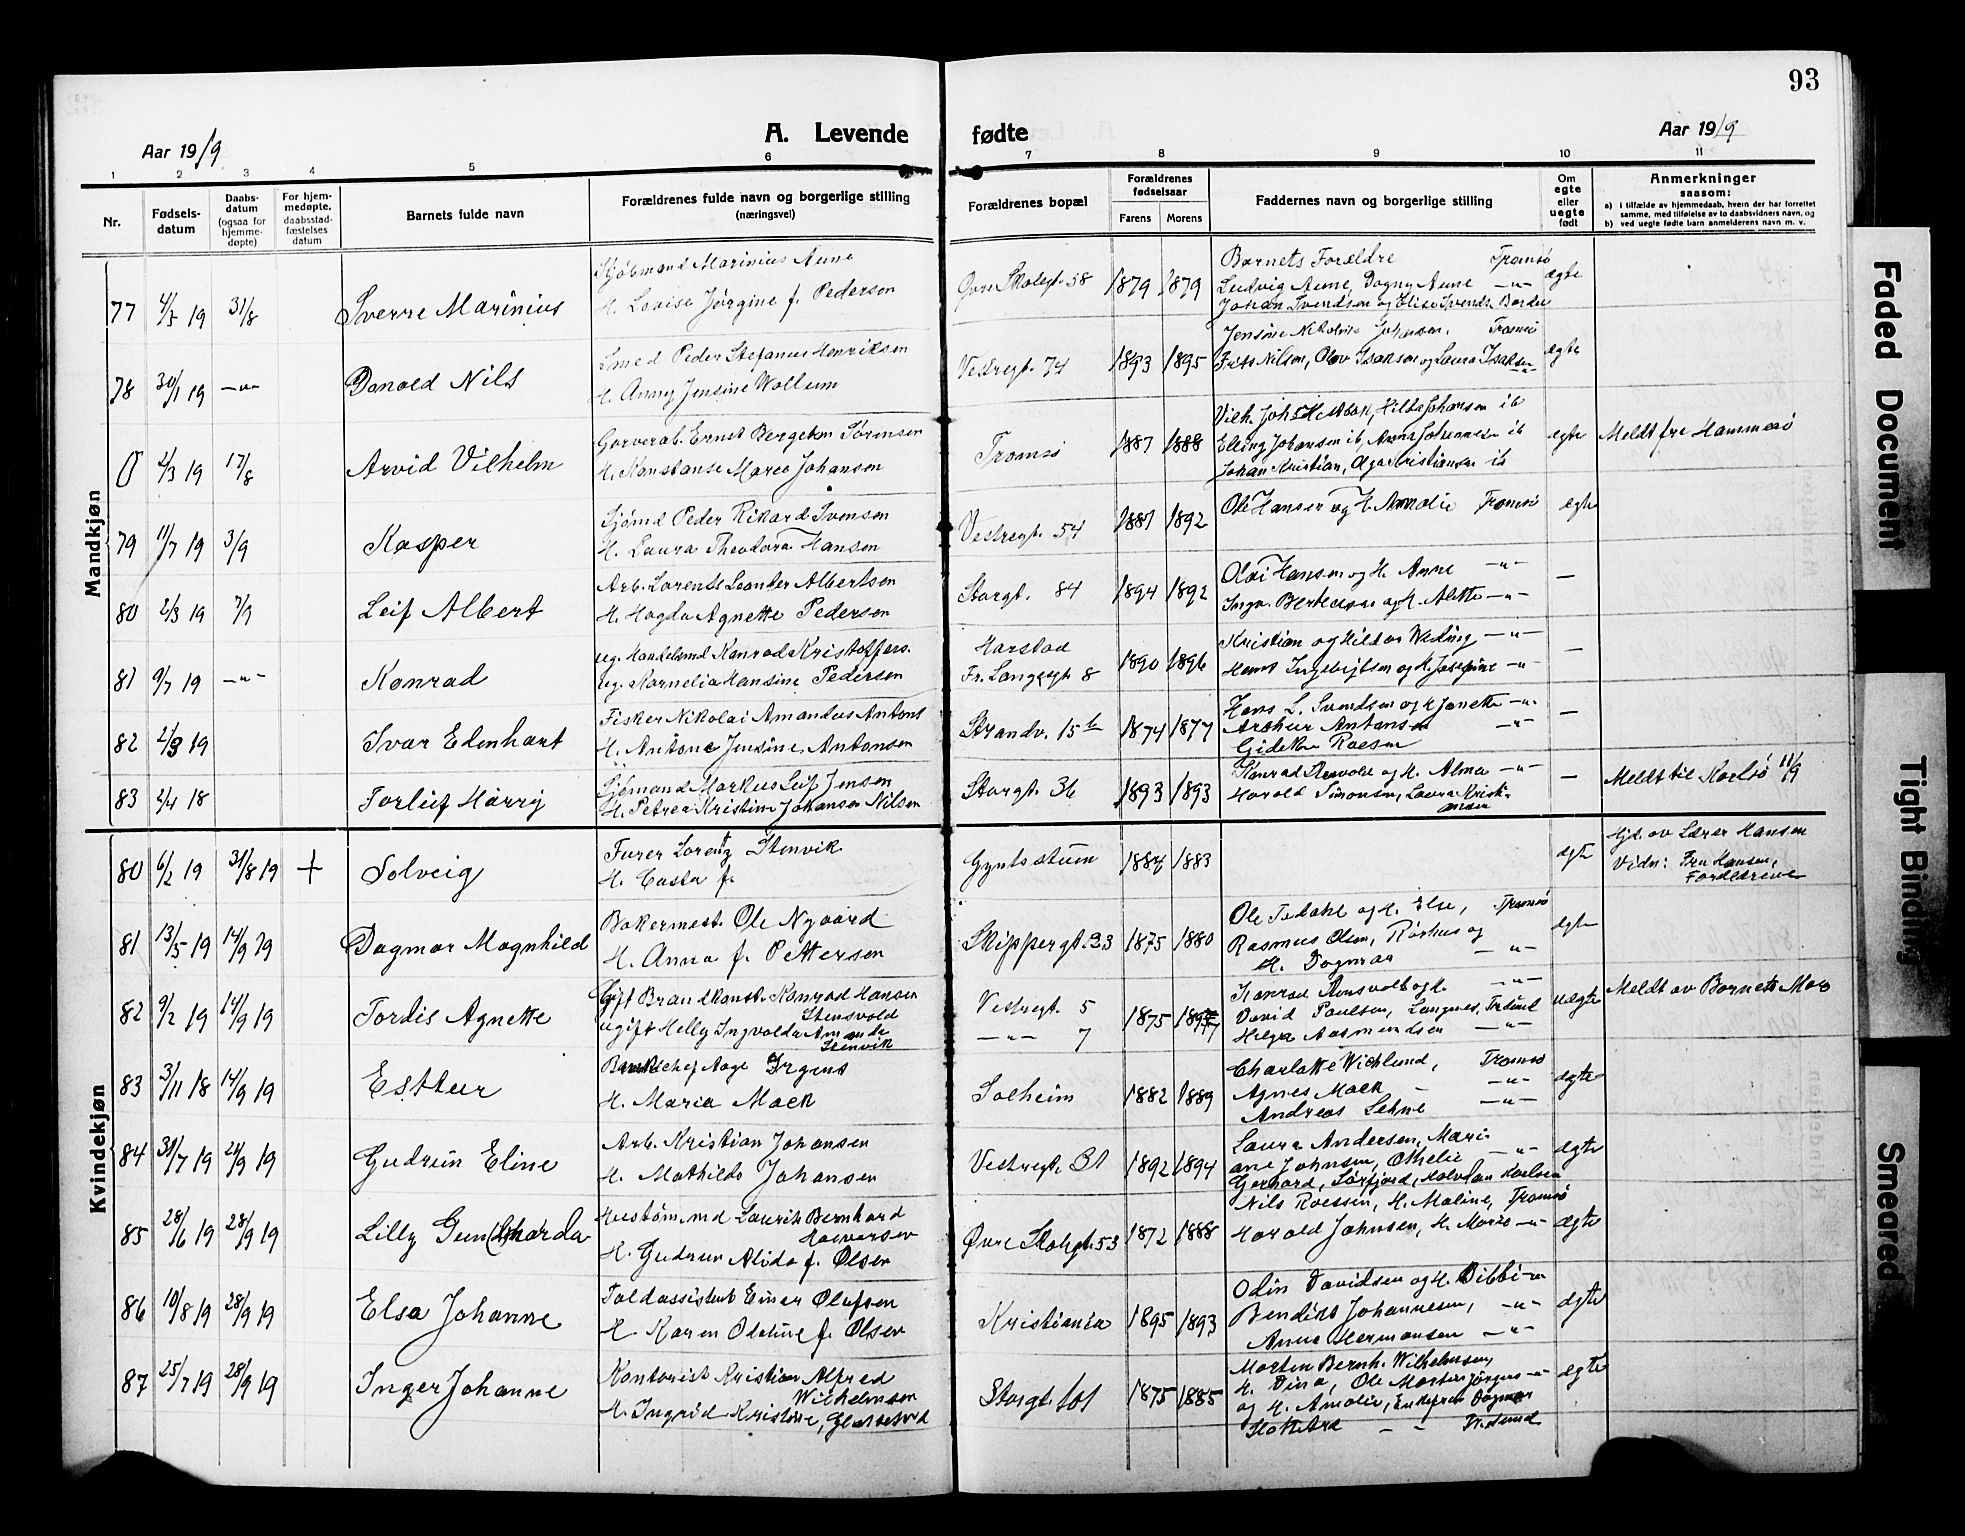 93
A. Levende fødte
Aar 1919
Aar 1919
1 2 3 4 5 6 7 8 9 10 11
Nr.
Fødsels-
datum
Daabs-
datum
(ogsaa for
hjemme-
døpte)
For hjem-
medøpte,
daabsstad-
fæstelses
datum
Barnets fulde navn
Forældrenes fulde navn og borgerlige stilling
(næringsvei)
Forældrenes bopæl
Forældrenes
fødselsaar
Farens Morens
Faddernes navn og borgerlige stilling
Om
egte
eller
uegte
født
Anmerkninger
saasom:
a) i tilfælde av hjemmedaab, hvem der har forrettet
samme, med tilføielse av to daabsvidners navn, og
b) ved uegte fødte barn anmelderens navn m. v.
Mandkjøn
77 4/3 19 31/8 Sverre Marinius
Kjøbmand Marinius Aune
H. Lovise Jørgine f. Pedersen
Øvre Skolegt. 58 1879 1879
Barnets Forældre Tromsø
Ludvig Aune, Dagny Aune —"—
Johan Svendsen og Elise Svends.
ægte
78 30/1 19 —"— Donald Nils
Smed Peder Stefanus Henriksen
H. Anny Jensine Wollum
Vestregt. 74 1893 1895
Jensine Nikoline Johansen. Tromsø
Frits Nilsen, Olav Isaksen og Laura Isaksen
ægte
0 2/3 19 17/8 Arvid Vilhelm
Garverarb. Ernst Bergeton Sørensen
H. Konstanse Marea Johansen
Tromsø 1887 1888
Elling Johansen ib, Anna Johannesen ib
Johan Kristian, Olga Kristiansen ib
egte
Meldt fra Hammerø
79 11/7 19 3/9 Kasper
Sjømd Peder Rikard Svensen
H. Laura Theodora Hansen
Vestregt. 54 1887 1892
Ole Hansen og H. Amalie Tromsø
egte
80 2/3 19 7/9 Leif Albert
Arb. Lorents Leander Albertsen
H. Magda Agnette Pedersen
Storgt. 84 1894 1892
Olai Hansen og H. Anne —"—
Ingv. Berteusen og H. Alette —"—
—
81 9/7 19 —"— Konrad
ug. Handelsmd Konrad Kristoffers.
ug. Kornelia Hansine Pedersen
Harstad
Fr. Langesgt 8 1890 1896
Kristian og Hilda Weding —"—
Hans Ingebrigtsen og H. Josefine —"—
—
82 2/3 19 Ivar Edenhart
Fisker Nikolai Amandus Antons
H. Antone Jensine Antonsen
Strandv. 15 b 1874 1877
Hans L. Svendsen og H Janette —"—
Arthur Antonsen —"—
—
83 2/4 18 Torleif Harry
Sjømand Markus Leif Jensen
H. Petrea Kristine Johansen Nilsen
Storgt. 36 1893 1893
Konrad Arnvold og H. Alma —"—
Harald Simonsen, Laura Kristi-
ansen
—
Meldt til Karlsø 11/9
Kvindekjøn
80 6/2 19 31/8 19 + Solveig
Furer Lorentz Stenvik
H. Casta f.
1884 1883
egte
Hjd. av Lærer Hansen
Vidn: Fru Hansen,
Forældrene
81 13/5 19 14/9 19 Dagmar Magnhild
Bakermest. Ole Nygaard
H. Anna f. Pettersen
Skippergt. 33 1875 1880
Ole Tedahl og H. Else, Tromsø
Rasmus Olsen, Rørhus og
H. Dagmar —"—
egte
82 9/2 19 14/9 19 Tordis Agnette
Gift Brandkonst. Konrad Hansen
Stensvold
ugift Helly Ingvolda Amanda
Stenvik
Vestregt. 5
—"— 7
1875
Konrad Arnsvold og H. —"—
David Paulsen, Langnes, Trdsund
Helga Aasmundsen —"—
uegte
Meldt av Barnets Mor
83 3/11 18 14/9 19 Esther
Bankchef Aage Irgens
H. Maria Mack
Solheim 1882 1889
Charlotte Wichlund, Tromsø
Agnes Mack —"—
Andreas Lehne —"—
ægte
84 31/7 19 21/9 19 Gudrun Eline
Arb. Kristian Johansen
H. Mathilde Johansen
Vestregt. 31 1892 1894
Laura Andersen, Mari-
ane Johnsen, Othelie —"—
Gerhard, Sørfjord, Halvdan Karlsen
ægte
85 28/6 19 28/9 19 Lilly Gunharda
Laurits Bernhard
Halvorsen
H. Gudrun Alida f. Olsen
Øvre Storgt. 53 1872 1888
Nils Roessen, H. Maline, Tromsø
Harald Johnsen, H. Marie —"—
ægte
86 10/8 19 28/9 19 Elsa Johanne
Toldassistent Einar Olufsen
H. Karen Odeline f. Olsen
Kristiania 1895 1893
Odin Davidsen og H. Dibbi —"—
Bendiks Johannesen, —"—
Anna Hermansen —"—
ægte
87 25/7 19 28/9 19 Inger Johanne
Kontorist Kristian Alfred
Wilhelmsen
H. Ingrid Kristine,
Storgt. 101 1875 1885
Morten Bernh. Wilhelmsen,
H. Dina, Ole Morten Jørgens —"—
og H. Amalie, Enkefru Dagmar
ægte
Faded Document
Tight Binding
Smeared